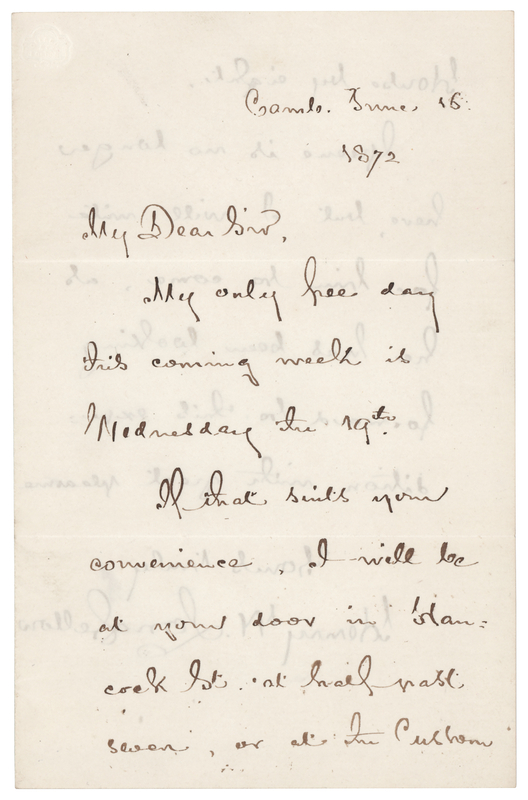 Camb. June 16.
1872
My Dear Sir,
My only free day
this coming week is
Wednesday the 19th.
If that suits your
convenience, I will be
at your door in Han=
cock St. at half past
seven, or at the Custom